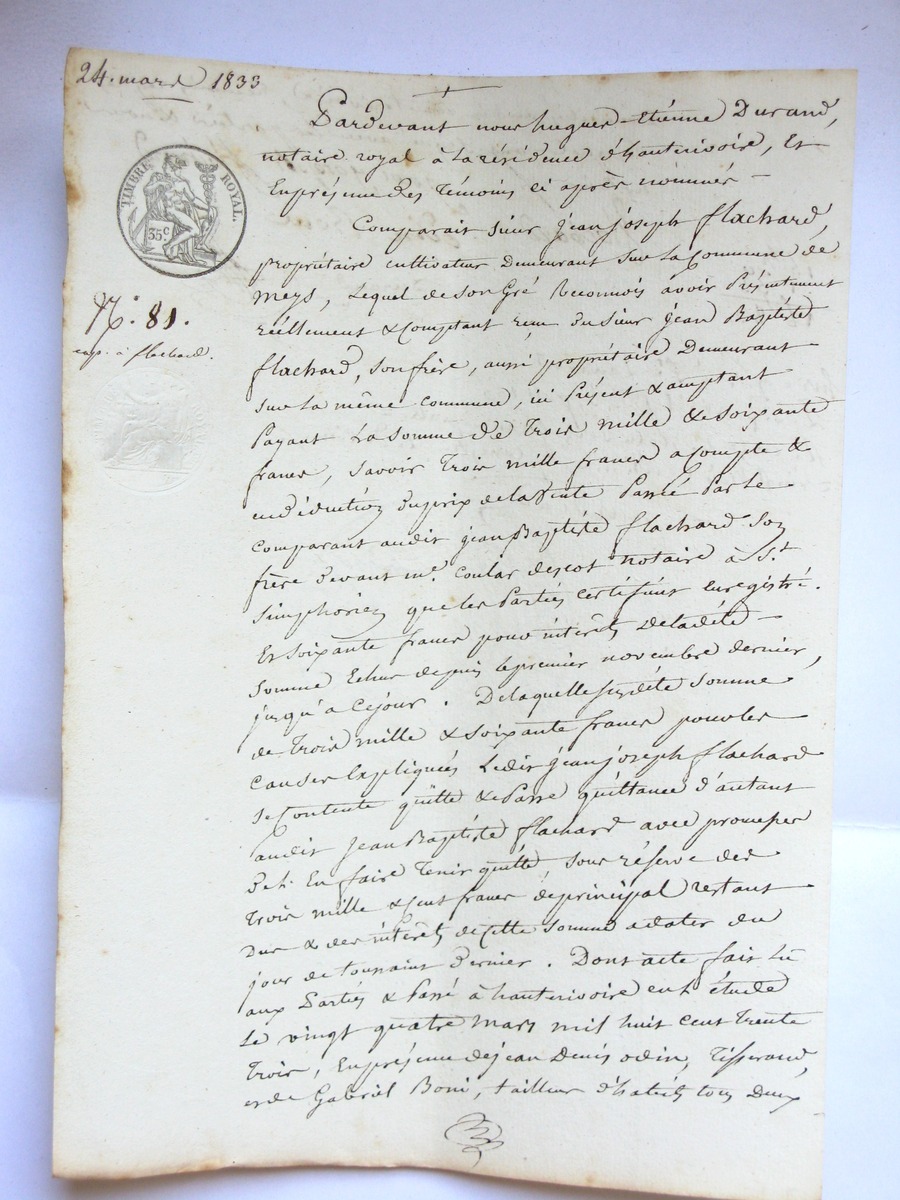 24. mars 1833
TIMBRE ROYAL.
35c.
N.º 81.
exp. à flachard.
Pardevant nous hugues-Etiénne Durand,
notaire royal à la résidence d'hauterivoire, Et
En présence des Témoins ci après nommés –
Comparait Sieur Jean joseph flachard,
propriétaire cultivateur Demeurant sur la Commune de
Meys, Lequel de son Gré Reconnois avoir Présentement
réellement & Comptant reçu du sieur Jean Baptiste
flachard, son frère, aussi propriétaire Demeurant
sur la même commune, ici Présent & acceptant
Payant La somme de Trois mille & Soixante
francs, savoir Trois mille francs a compte &
en déduction du prix de la Vente Passé Par le
comparant audit jean Baptiste flachard son
frère devant me. coular descot notaire à St.
Simphorien que les Parties certifient Enregistré.
Et Soixante francs pour interêts de ladite –
somme Echus depuis le premier novembre dernier,
jusqu'à Cejour. De laquelle susdite somme
de Trois mille & Soixante francs pour les
Causes Expliquées Ledit jean joseph flachard
se Contente quitte & Passe quittance d'autant
audit Jean Baptiste flachard avec promesses
De En faire Tenir quitte, sous réserve des
Trois mille & cent francs de principal restant
Dus & des interêts de cette somme adater du
jour de toussaint dernier. Dont acte fait Lu
aux Parties & Passé à hauterivoire en étude
Le vingt quatre Mars mil huit Cent Trente
Trois, En présence de jean Denis odin, Tisserand,
et de Gabriel Boni, tailleur d'habits tous Deux